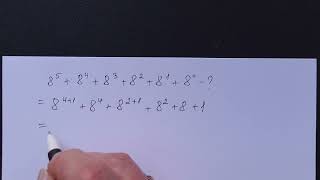 8⁵ + 8⁴ + 8³ + 8² + 8¹ + 8⁰ - ?
= 8⁴⁺¹ + 8⁴ + 8²⁺¹ + 8² + 8 + 1
=